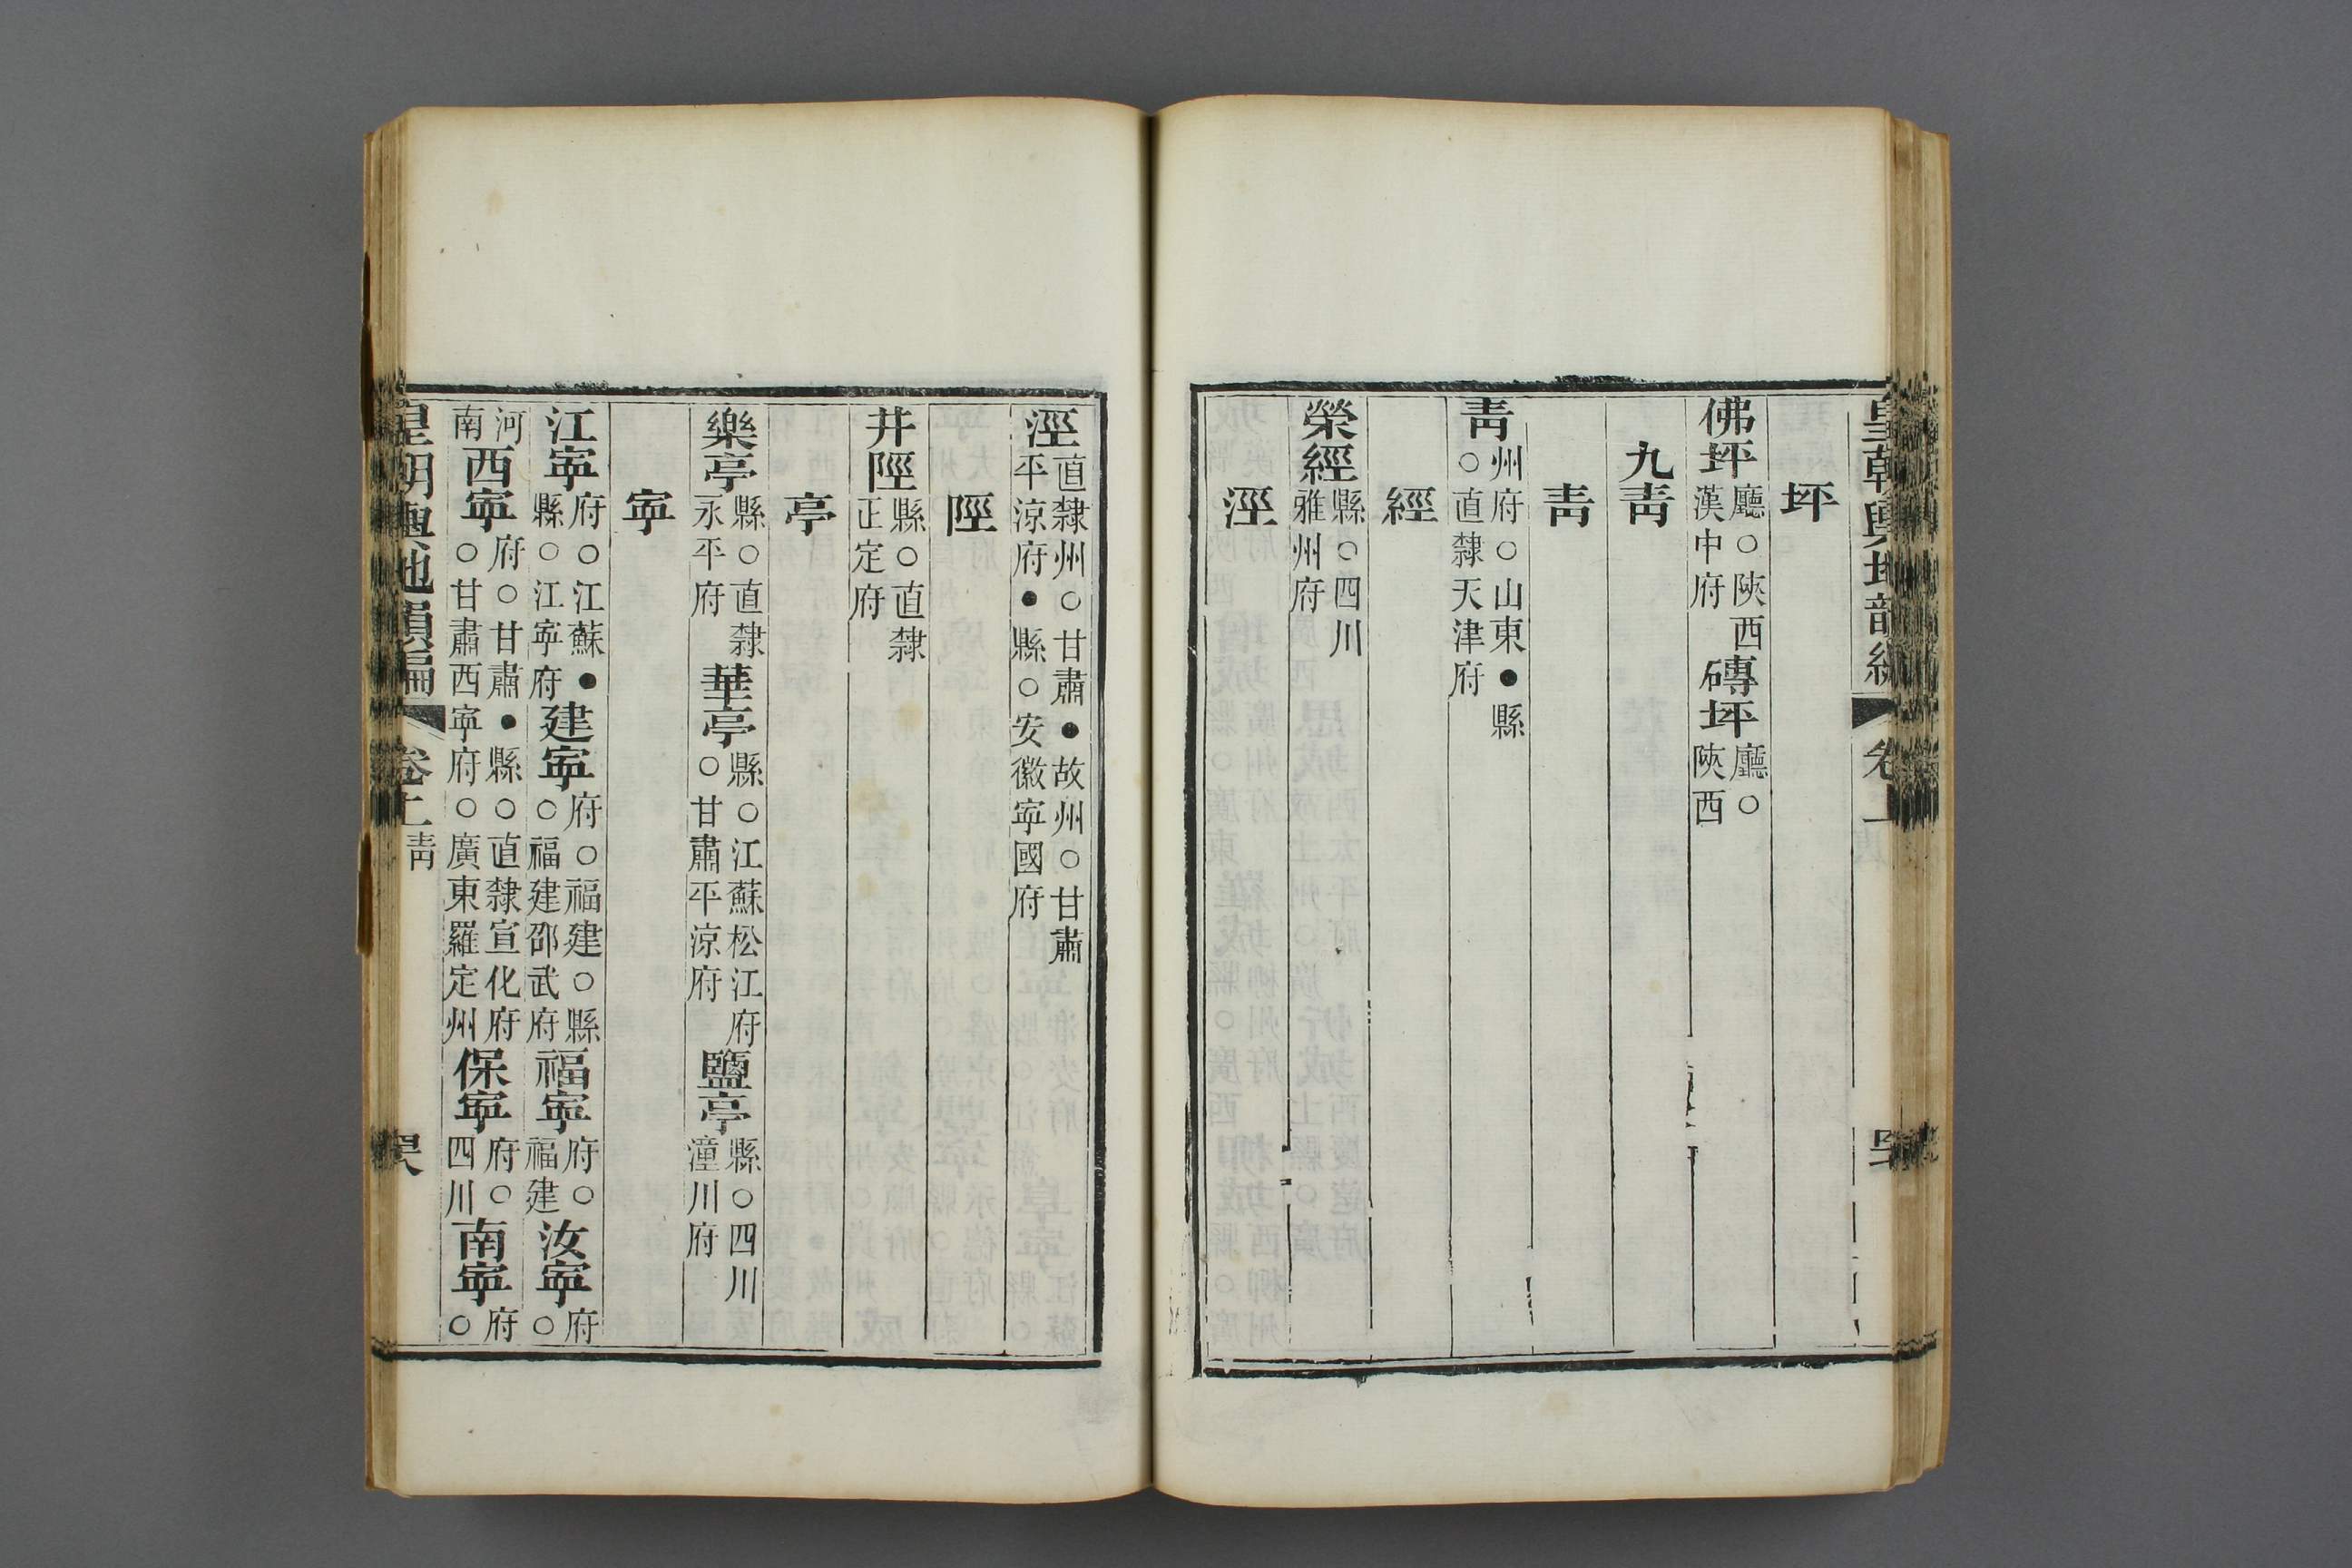 皇朝輿地韻編 卷上
坪
佛坪廳○陝西漢中府 磚坪廳○陝西
九青
青
青州府○山東●縣○直隸天津府
經
榮經縣○四川雅州府
涇
涇直隸州○甘肅●故州○甘肅平涼府●縣○安徽寧國府
陘
井陘縣○直隸正定府
亭
樂亭縣○直隸永平府 華亭縣○江蘇松江府○甘肅平涼府 鹽亭縣○四川潼川府
寧
江寧府○江蘇●縣○江寧府 建寧府○福建○縣○福建邵武府 福寧府○福建 汝寧府○
河南 西寧府○甘肅●縣○直隸宣化府○甘肅西寧府○廣東羅定州 保寧府○四川 南寧府○
皇朝輿地韻編 卷上 青